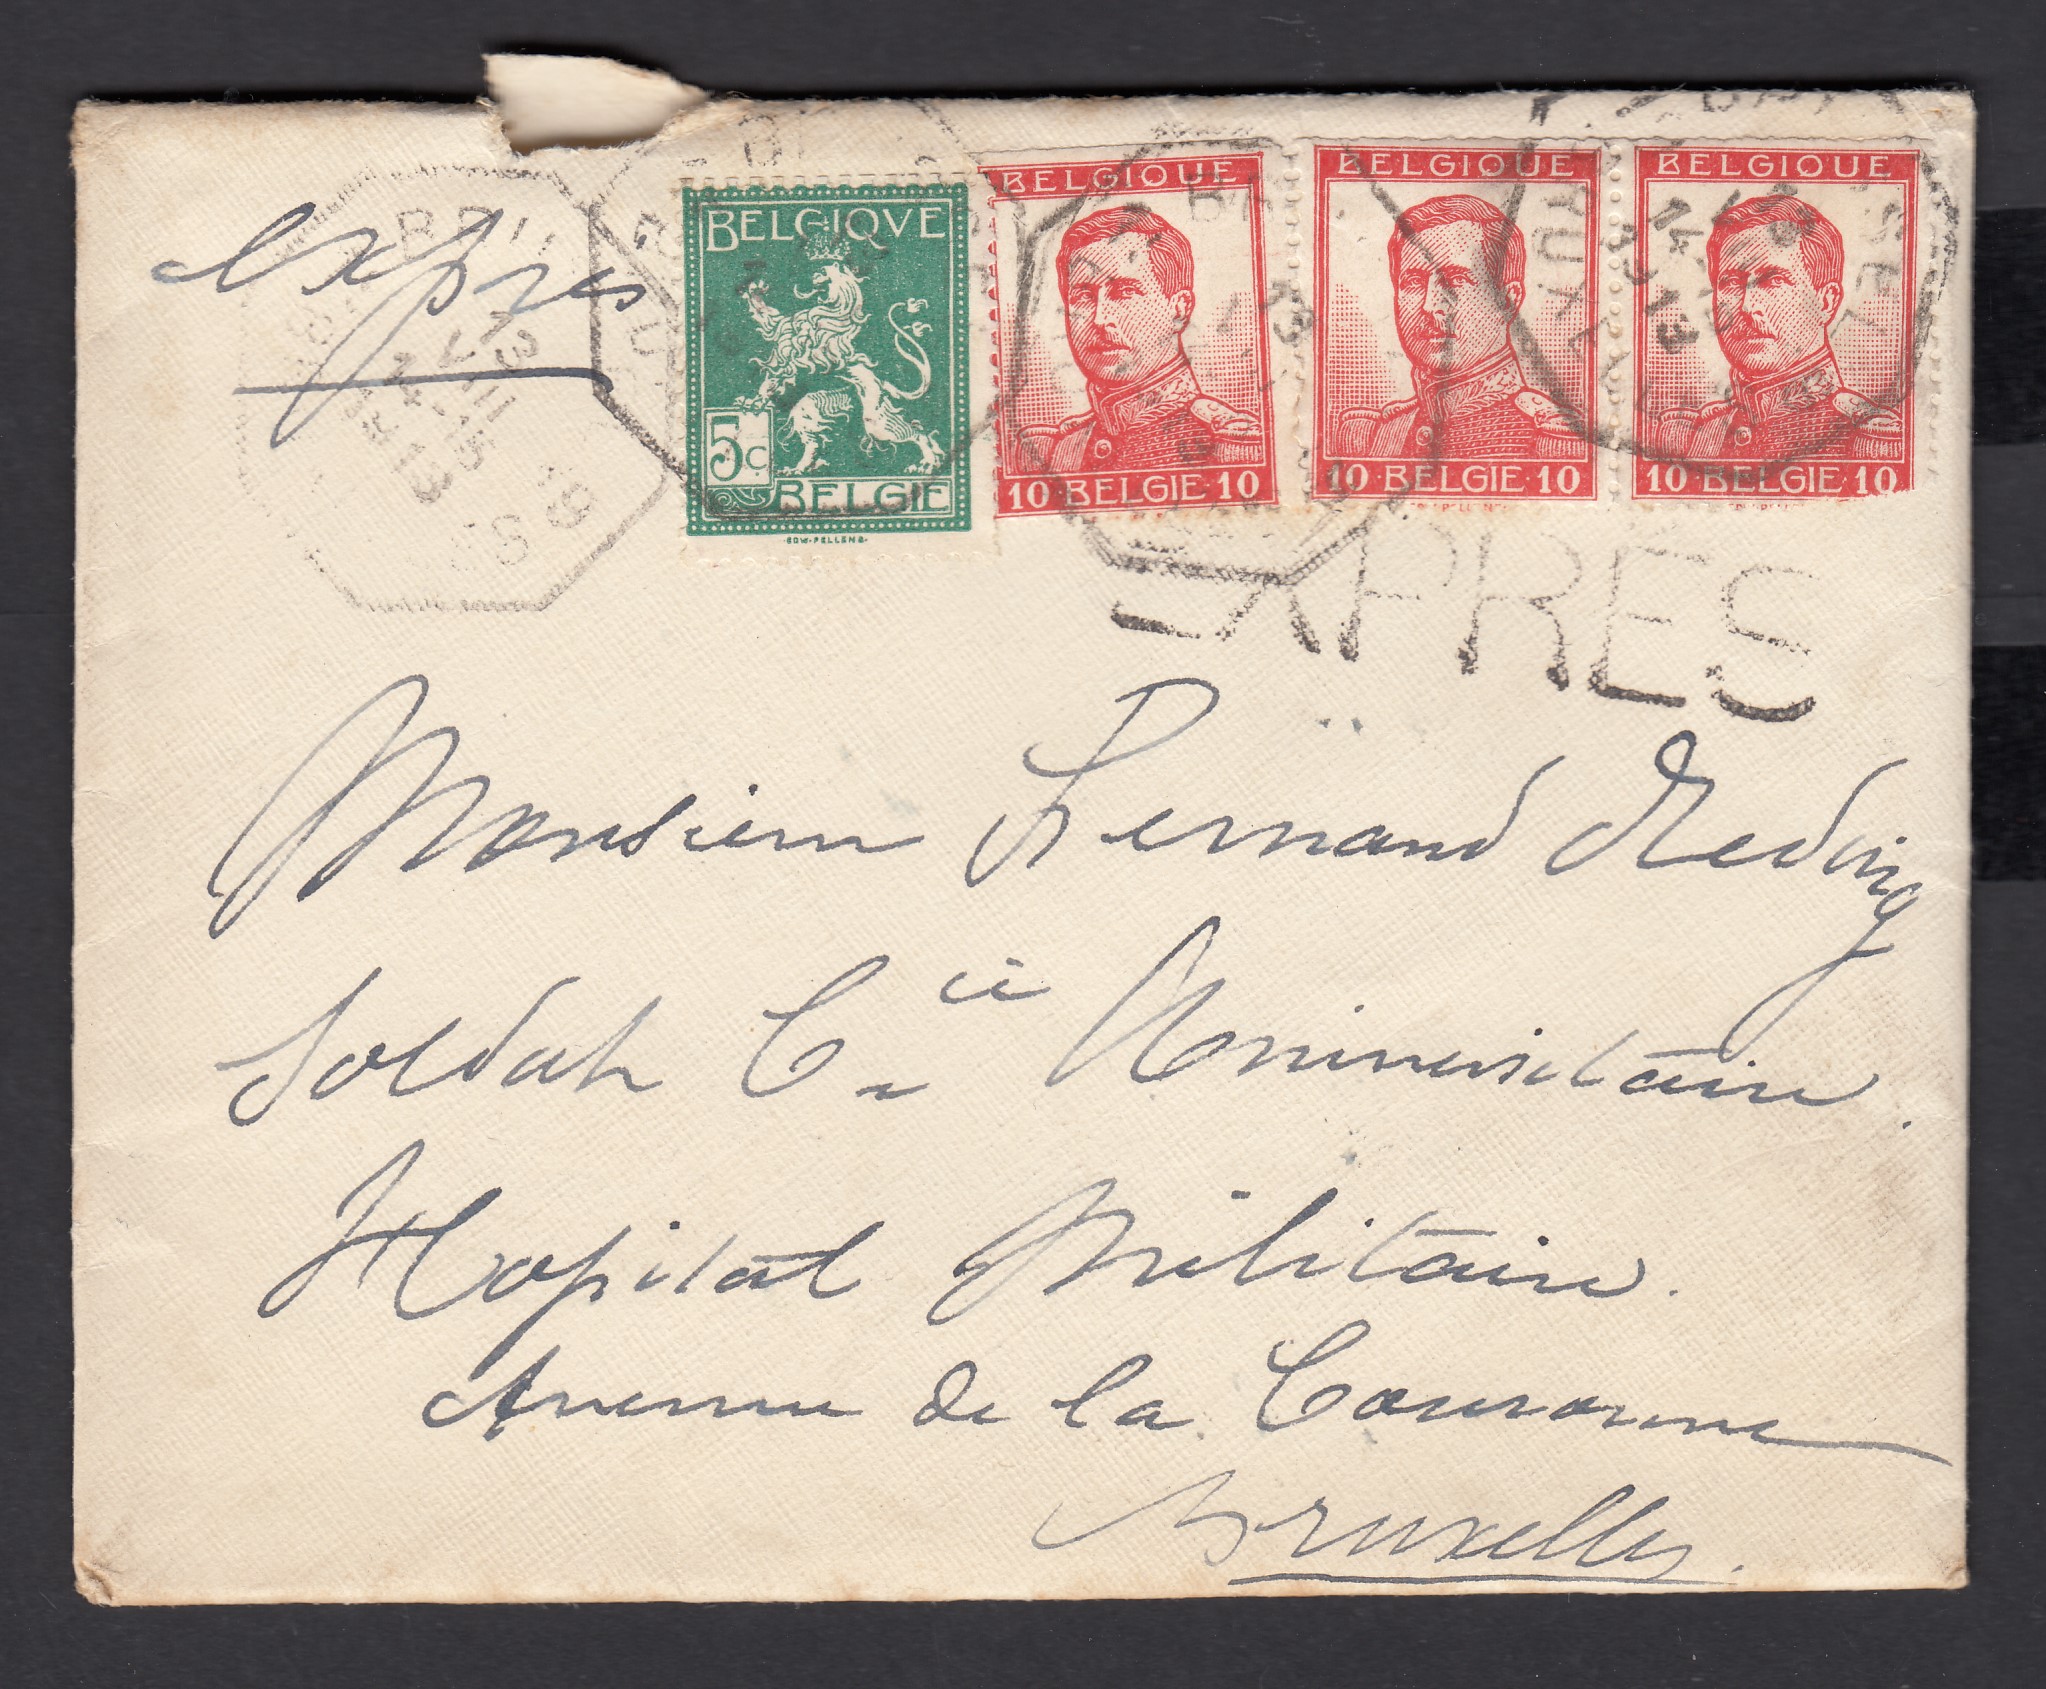 exprès
BELGIQVE
5c
BELGIE
EDW·PELLENS
BELGIQUE BELGIQUE BELGIQUE
10·BELGIE·10 10·BELGIE·10 10·BELGIE·10
13 VIII
14-15
1913
EXPRES
Monsieur Fernand Reding
Soldat Cie Universitaire
Hopital Militaire.
Avenue de la Couronne
Bruxelles.